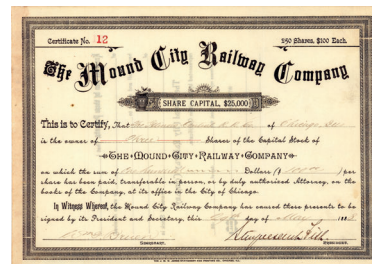 Certificate No. 12 250 Shares, $100 Each.
The Mound City Railway Company
SHARE CAPITAL, $25,000
This is to Certify, That of Chicago, Ills
is the owner of Shares of the Capital Stock of
THE MOUND CITY RAILWAY COMPANY
on which the sum of One hundred Dollars ($100.00) per
share has been paid, transferable in person, or by duly authorized Attorney, on the
books of the Company, at its office in the City of Chicago.
In Witness Whereof, the Mound City Railway Company has caused these presents to be
signed by its President and Secretary, this day of 188
Secretary. President.